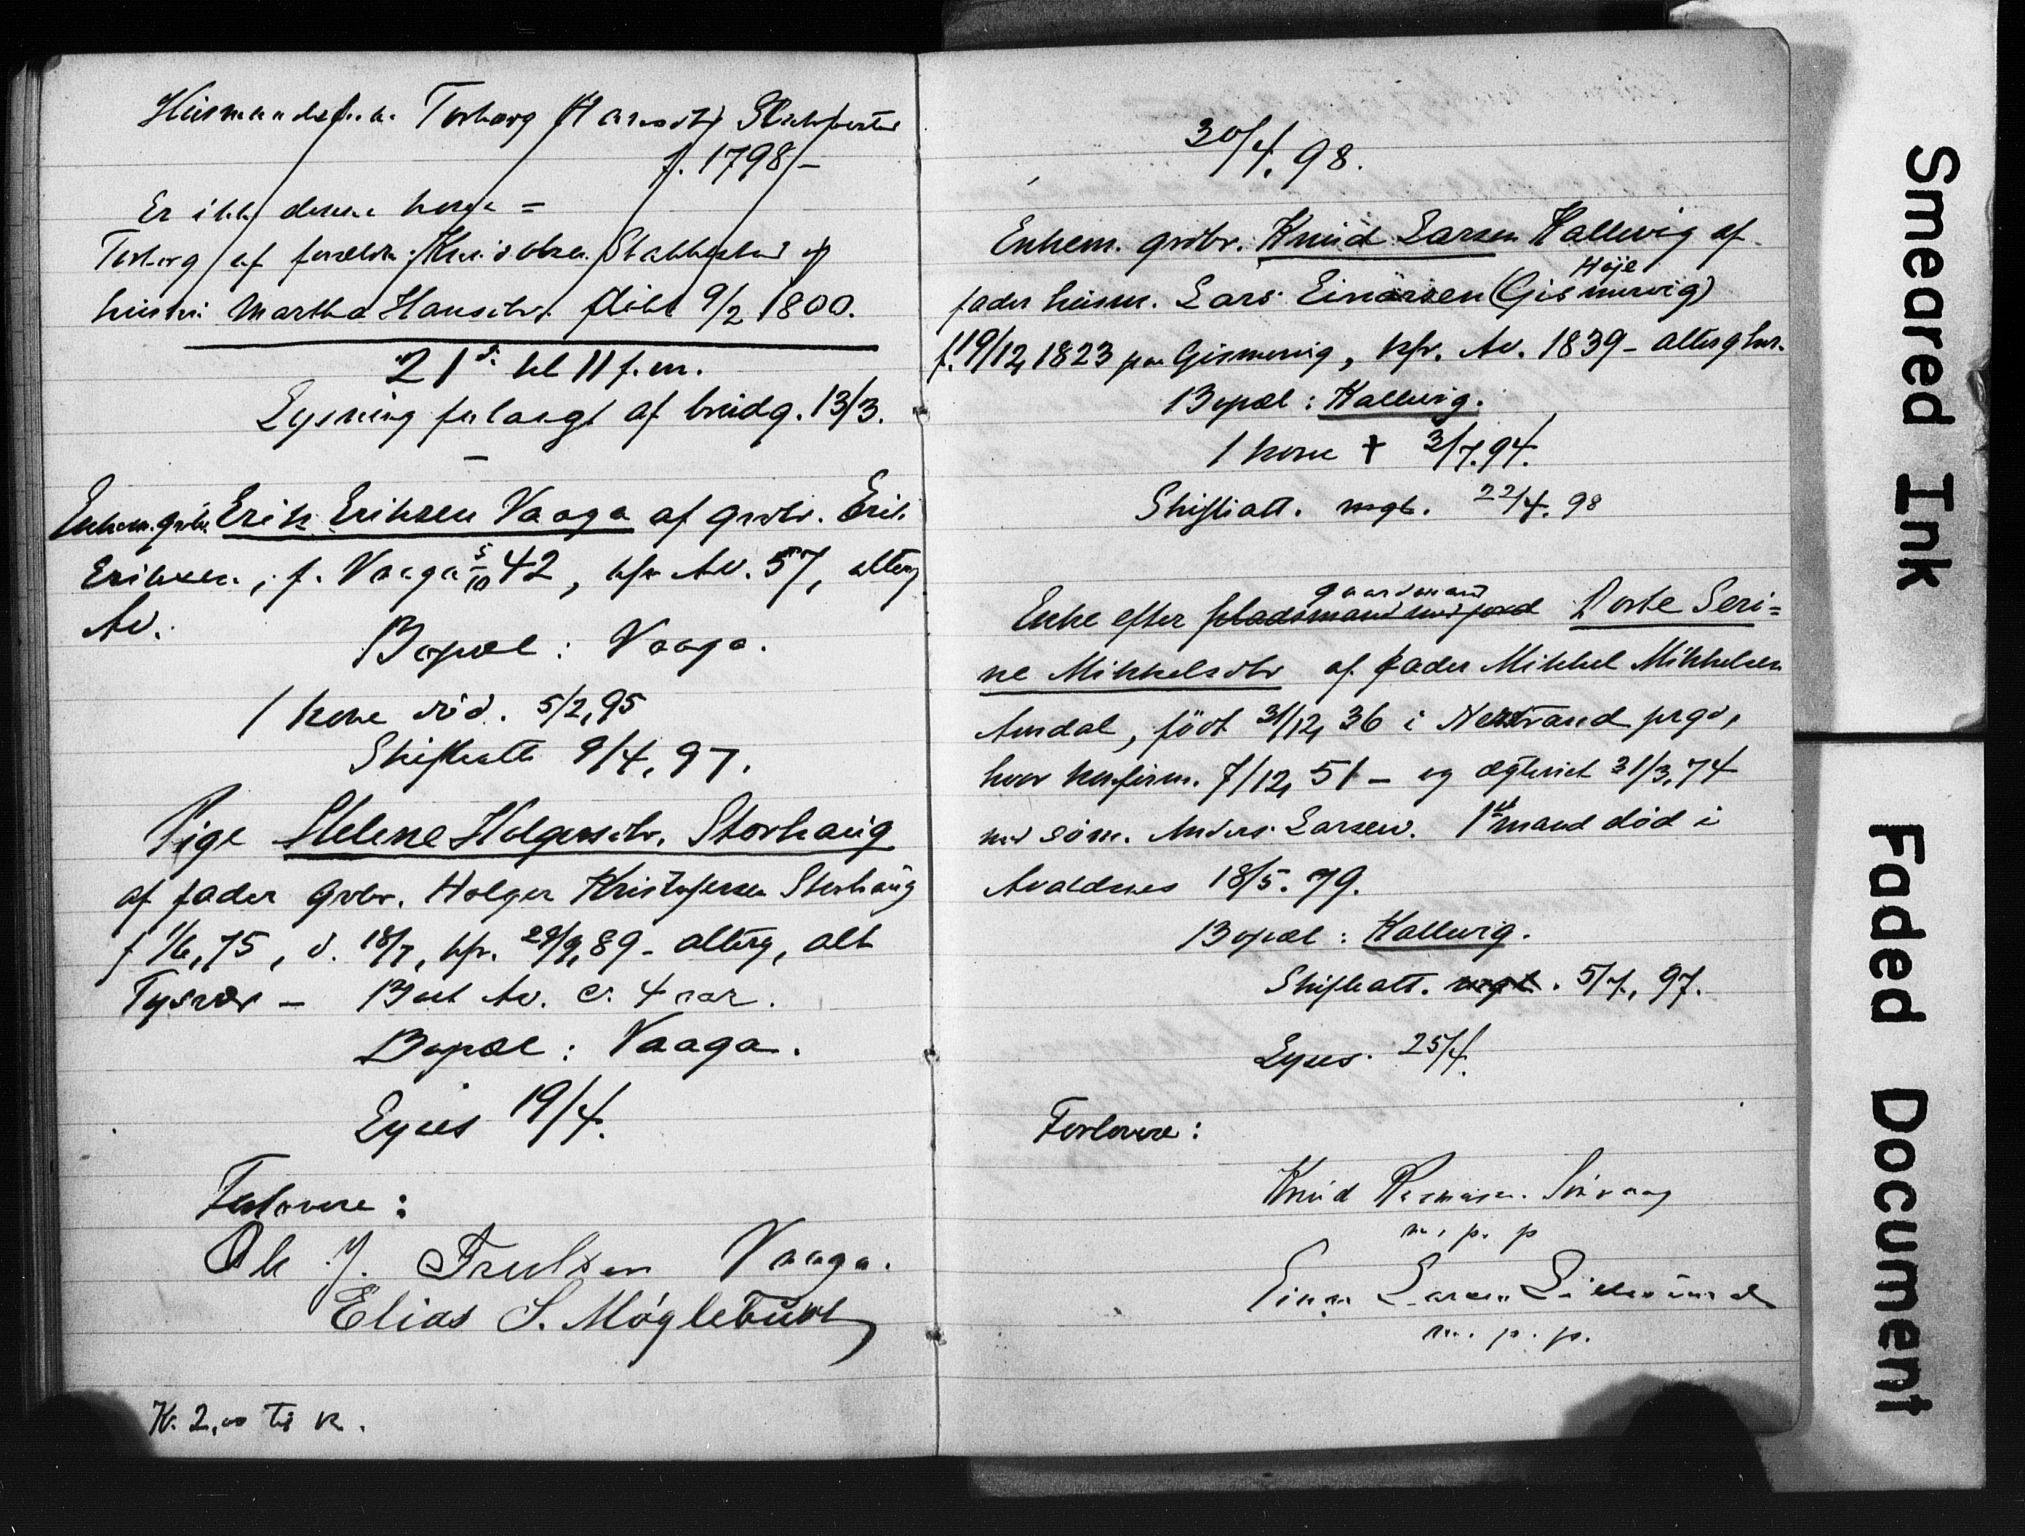 Husmandsenke Torborg Hansdtr Stakkestad
f. 1798 –
Er ikke denne kone =
Torborg af forældre: Knud Olsen Stakkestad og
hustru Martha Hansdtr. døbt 9/2 1800.
21de kl 11 f.m.
Lysning forlangt af brudg. 13/3.
–
Enkem. grdbr. Erik Eriksen Vaaga af grdbr. Erik
Eriksen, f. Vaaga 5/10 42, kfr Av. 57, alterg
Av.
Bopæl : Vaaga.
1 kone død. 5/2,95
Skifteatt 9/4, 97.
Pige Helene Holgersdtr. Storhaug
af fader Grdbr. Holger Kristofersen Storhaug
f 1/6,75, d. 18/7, kfr. 29/9,89 – alterg, alt
Tysvær – Boet Av. c. 4 aar.
Bopæl : Vaaga.
Lyses 19/4.
Forlovere :
Ole J. Vaaga.
Elias S. Møgletuvt
Kr. 2,00 til k.
30/4. 98.
Enkem. grdbr. Knud Larsen Hallevig af
Høje
fader husm. Lars Einarsen (Gismervig)
f. 19/12, 1823 paa Gismervig, kfr. Av. 1839 – alterg her.
Bopæl : Hallevig.
1 kone † 3/7.94.
Skifteatt. mgl. 22/4. 98
gaardmand
Enke efter pladsmand med jord Dorte Seri=
ne Mikkelsdtr af fader Mikkel Mikkelsen
Amdal, født 31/12, 36 i Nerstrand prgd,
hvor konfirm. 7/12, 51 – og ægteviet 31/3, 74
med søm. Anders Larsen. 1ste mand død i
Avaldsnes 18/5. 79.
Bopæl : Hallevig.
Skifteatt. mgl. . 5/7, 97.
Lyses. 25/4.
Forlovere :
Knud Rasmusen
m. p. p
Einar Larsen
m. p. p.
Smeared Ink
Faded Document